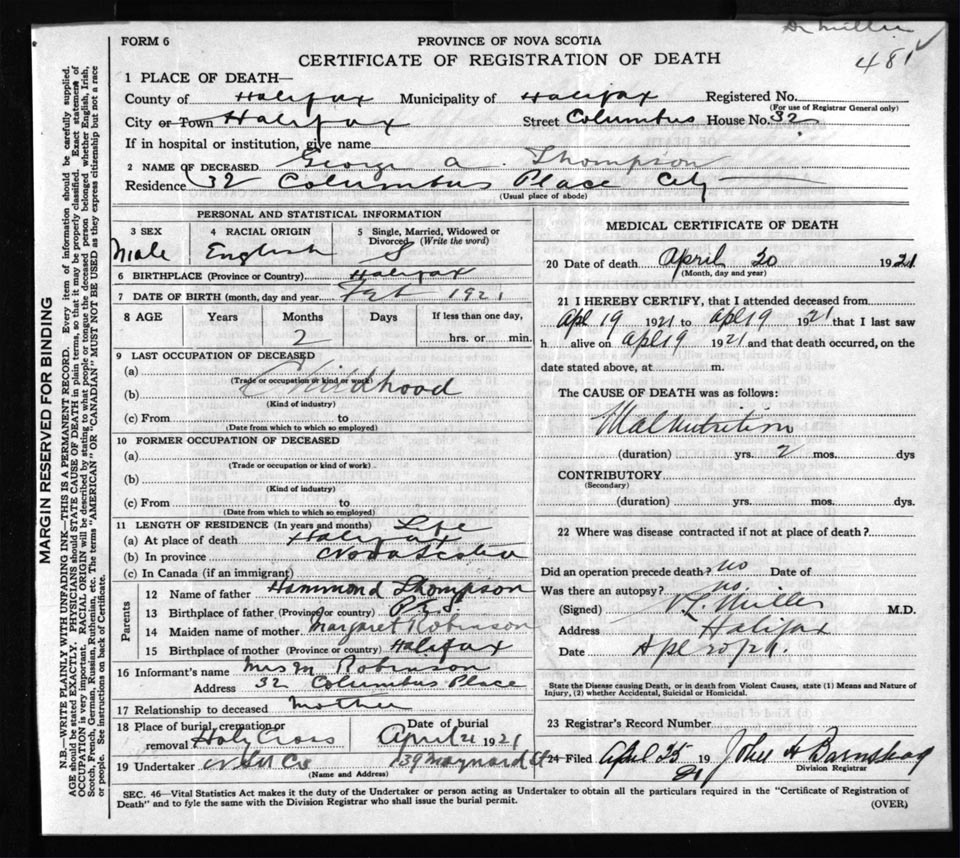 Dr Miller
481
FORM 6
PROVINCE OF NOVA SCOTIA
CERTIFICATE OF REGISTRATION OF DEATH
1 PLACE OF DEATH—
County of Halifax Municipality of Halifax Registered No.
(For use of Registrar General only)
City or Town Halifax Street Columbus House No. 32
If in hospital or institution, give name
2 NAME OF DECEASED George A. Thompson
Residence 32 Columbus Place City
(Usual place of abode)
PERSONAL AND STATISTICAL INFORMATION
3 SEX Male
4 RACIAL ORIGIN English
5 Single, Married, Widowed or Divorced (Write the word) S
6 BIRTHPLACE (Province or Country) Halifax
7 DATE OF BIRTH (month, day and year) Feb 1921
8 AGE Years Months Days If less than one day,
2 hrs. or min.
9 LAST OCCUPATION OF DECEASED
(a)
(Trade or occupation or kind of work)
(b) Childhood
(Kind of industry)
(c) From to
(Date from which to which so employed)
10 FORMER OCCUPATION OF DECEASED
(a)
(Trade or occupation or kind of work)
(b)
(Kind of industry)
(c) From to
(Date from which to which so employed)
11 LENGTH OF RESIDENCE (In years and months) Life
(a) At place of death Halifax
(b) In province Nova Scotia
(c) In Canada (if an immigrant)
Parents
12 Name of father Hammond Thompson
13 Birthplace of father (Province or country)
14 Maiden name of mother Margaret Robinson
15 Birthplace of mother (Province or country) Halifax
16 Informant's name Mrs M Robinson
Address 32 Columbus Place
17 Relationship to deceased Mother
18 Place of burial, cremation or removal Holy Cross
Date of burial April 21 1921
19 Undertaker 139 Maynard St
(Name and Address)
MEDICAL CERTIFICATE OF DEATH
20 Date of death April 20 1921
(Month, day and year)
21 I HEREBY CERTIFY, that I attended deceased from
Apl 19 1921 to apl 19 1921 that I last saw
h alive on apl 19 1921 and that death occurred, on the
date stated above, at m.
The CAUSE OF DEATH was as follows:
Malnutrition
(duration) yrs. 2 mos. dys
CONTRIBUTORY
(Secondary)
(duration) yrs. mos. dys.
22 Where was disease contracted if not at place of death?
Did an operation precede death? no Date of
Was there an autopsy? no.
(Signed) Miller M.D.
Address Halifax
Date Apl 20/21.
State the Disease causing Death, or in death from Violent Causes, state (1) Means and Nature of
Injury, (2) whether Accidental, Suicidal or Homicidal.
23 Registrar's Record Number
24 Filed April 25 1921 John A Barnstead
Division Registrar
SEC. 46—Vital Statistics Act makes it the duty of the Undertaker or person acting as Undertaker to obtain all the particulars required in the "Certificate of Registration of
Death" and to fyle the same with the Division Registrar who shall issue the burial permit.
(OVER)
MARGIN RESERVED FOR BINDING
N.B.—WRITE PLAINLY WITH UNFADING INK—THIS IS A PERMANENT RECORD. Every item of information should be carefully supplied.
AGE should be stated EXACTLY. PHYSICIANS should STATE CAUSE OF DEATH in plain terms, so that it may be properly classified. Exact statement of
OCCUPATION is very important. RACIAL ORIGIN will be described by stating to what people or tongue the deceased person belonged whether English, Irish,
Scotch, French, German, Russian, Ruthenian, etc. The terms "AMERICAN" OR "CANADIAN" MUST NOT BE USED as they express citizenship but not a race
or people. See instructions on back of Certificate.